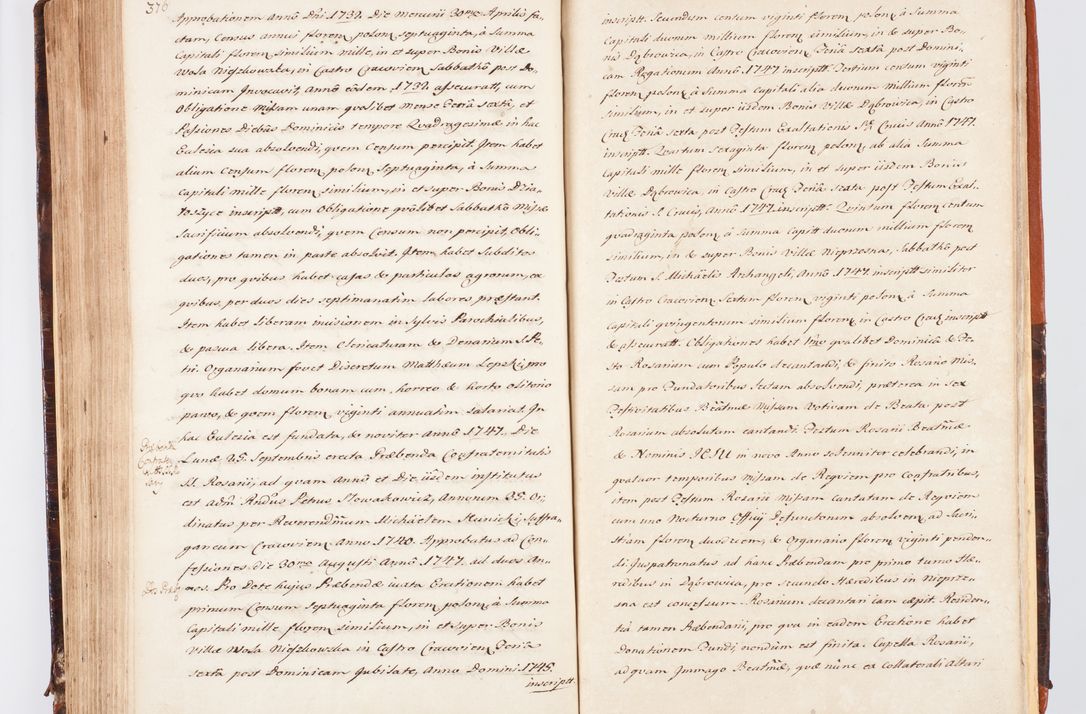 376
Approbationem Anno Dni 1732. Die Mercurii 30mo Aprilis fa-
ctam, Census annui floren. polon. septuaginta, à Summa
Capitali floren. similium, mille, in et super Bonis Villæ
Wola Nieszkowska, in Castro Cracovien. Sabbatho post Do-
minicam Invocavit, Anno eodem 1732. assecurati, cum
Obligatione Missam unam qvolibet Mense Feria Sexta, et
Passiones Diebus Dominicis tempore Qvadragesimæ in hac
Ecclesia sua absolvendi, qvem Censum percipit. Item habet
alium Censum floren. polon. Septuaginta, à Summa
Capitali mille floren. similium, in et super Bonis
toszyce inscriptt. cum Obligatione qvolibet Sabbatho Missæ
Sacrificium absolvendi, qvem Censum non percipit, Obli-
gationes tamen in parte absolvit. Item habet Subditos
duos, pro qvibus habet casas & particulas agrorum, ex
qvibus, per duos dies septimanatim labores, præstant.
Item habet liberam incisionem in Sylvis Parochialibus,
& pascua libera. Item Clericaturam & Denarium S. Pe-
tri. Organarium fovet Discretum Matthæum Lepski, pro
qvo habet domum bonam cum horreo & horto olitorio
parvo, & qvem floren. viginti annuatim salariat. In
hac Ecclesia est fundata, & noviter Anno 1747. Die
Lunæ 25. Septembris erecta Præbenda Confraternitatis
SS. Rosarii, ad qvam Anno et Die iisdem institutus
est Adm. Rndus Petrus Slowakowicz, Annorum 35. Or-
dinatus per Reverendissimum Michaelem Kunicki, Suffra-
ganeum Cracovien. Anno 1740. Approbatus ad Con-
fessiones die 30mo Augusti Anno 1747. ad duos An-
nos. Pro Dote hujus Præbendæ iuxta Erectionem habet
primum Censum Septuaginta floren. polon. à Summa
Capitali mille floren. similium, in et super Bonis
Villæ Wola Nieszkowska in Castro Cracovien. Feria
sexta post Dominicam Jubilate, Anno Domini 1745.
inscriptt.
inscriptt. Secundum censum viginti floren. polon. à Summa
Capitali duorum millium floren. similium, in & super Bo-
nis Dąbrowica, in Castro Cracovien. Feria sexta post Domini-
cam Rogationum Anno 1747. inscriptt. Tertium censum viginti
floren. polon. à Summa Capitali alia duorum millium floren.
similium, in et super iisdem Bonis Villæ Dąbrowica, in Castro
Crac. Feria Sexta post Festum Exaltationis S. Crucis Anno 1747.
inscriptt. Qvartum Sexaginta floren. polon. ab alia Summa
Capitali mille floren. similium, in et super iisdem Bonis
Villæ Dąbrowica, in Castro Crac. Feria sexta post Festum Exal-
tationis S. Crucis, Anno 1747. inscriptt. Qvintum floren. centum
qvadraginta polon. à Summa Capitt. duorum millium floren.
similium, in & super Bonis Villæ Nieprzesna, Sabbatho post
Festum S. Michaelis Archangeli, Anno 1747. inscriptt. similiter
in Castro Cracovien. Sextum floren. viginti polon. à Summa
Capitali qvingentorum similium floren. in Castro Crac. inscriptt.
& assecuratt. Obligationes habet Imo qvalibet Dominica & Fe-
sto Rosarium cum Populo decantandi, & finito Rosario Mis-
sam pro Fundatoribus Lectam absolvendi, præterea in Sex
Festivitatibus Beatmæ Missam Votivam de Beata post
Rosarium absolutam cantandi. Festum Rosarii Beatmæ
& Nominis JESU in novo Anno solenniter celebrandi, in
qvatuor temporibus Missam de Reqviem pro Confratribus,
item post Festum Rosarii Missam cantatam de Reqviem
cum uno Nocturno Officij Defunctorum absolven. ad Sacri-
stiam floren. duodecem, & Organario floren. viginti penden-
di. Juspatronatus ad hanc Præbendam pro primo turno Hæ-
redibus in Dąbrowica, pro Secundo Hæredibus in Nieprze-
sna est concessum. Rosarium decantari iam cæpit. Residen-
tia tamen Præbendarii, pro qva in eadem Erectione habet
Donationem Fundi nondum est finita. Capella Rosarii,
ad qvam Immago Beatmæ, qvæ nunc ex Collaterali Altari